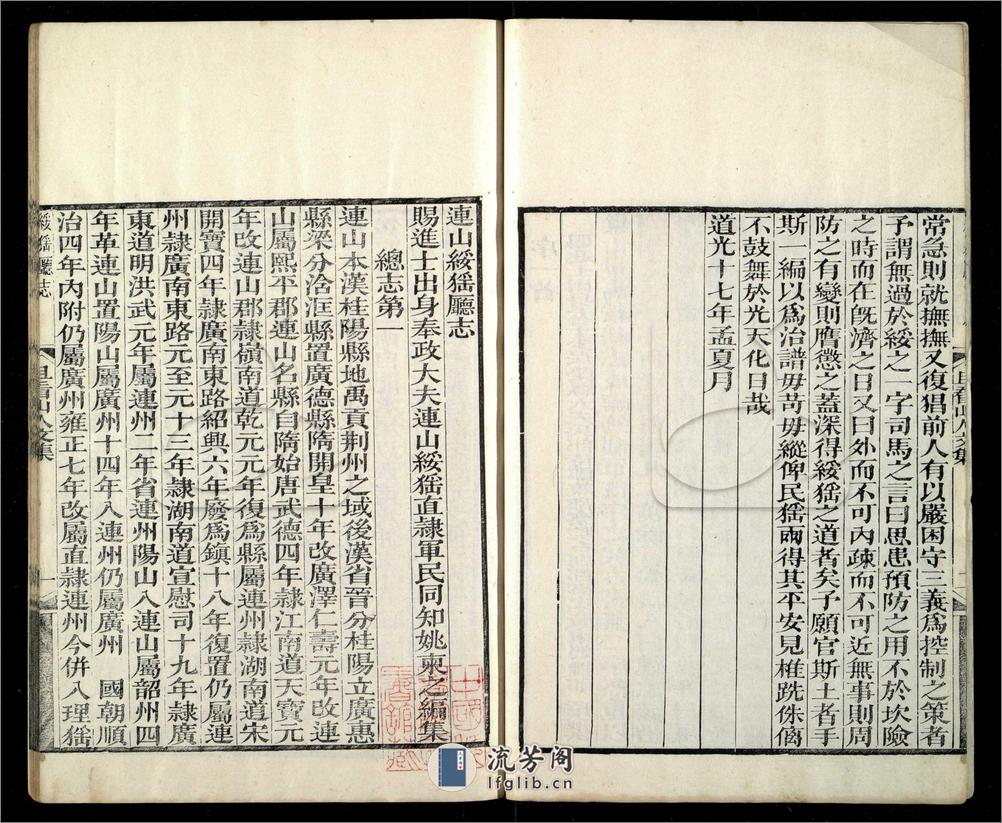 常急則就撫撫又復猖前人有以嚴困守三義爲控制之策者
予謂無過於綏之一字司馬之言曰思患預防之用不於坎險
之時而在旣濟之日又曰外而不可內疎而不可近無事則周
防之有變則膺懲之蓋深得綏猺之道者矣予願官斯土者手
斯一編以爲治譜毋苛毋縱俾民猺兩得其平安見椎跣侏𠌯
不鼓舞於光天化日哉
道光十七年孟夏月
連山綏猺廳志
賜進士出身奉政大夫連山綏猺直隸軍民同知姚柬之編集
總志第一
連山本漢桂陽縣地禹貢荆州之域後漢省晉分桂陽立廣惠
縣梁分浛洭縣置廣德縣隋開皇十年改廣澤仁壽元年改連
山屬熙平郡連山名縣自隋始唐武德四年隸江南道天寶元
年改連山郡隸嶺南道乾元元年復爲縣屬連州隸湖南道宋
開寶四年隸廣南東路紹興六年廢爲鎮十八年復置仍屬連
州隸廣南東路元至元十三年隸湖南道宣慰司十九年隸廣
東道明洪武元年屬連州二年省連州陽山入連山屬韶州四
年革連山置陽山屬廣州十四年入連州仍屬廣州 國朝順
治四年內附仍屬廣州雍正七年改屬直隸連州今併八理猺
綏猺廳志
一
流芳阁
lfglib.cn